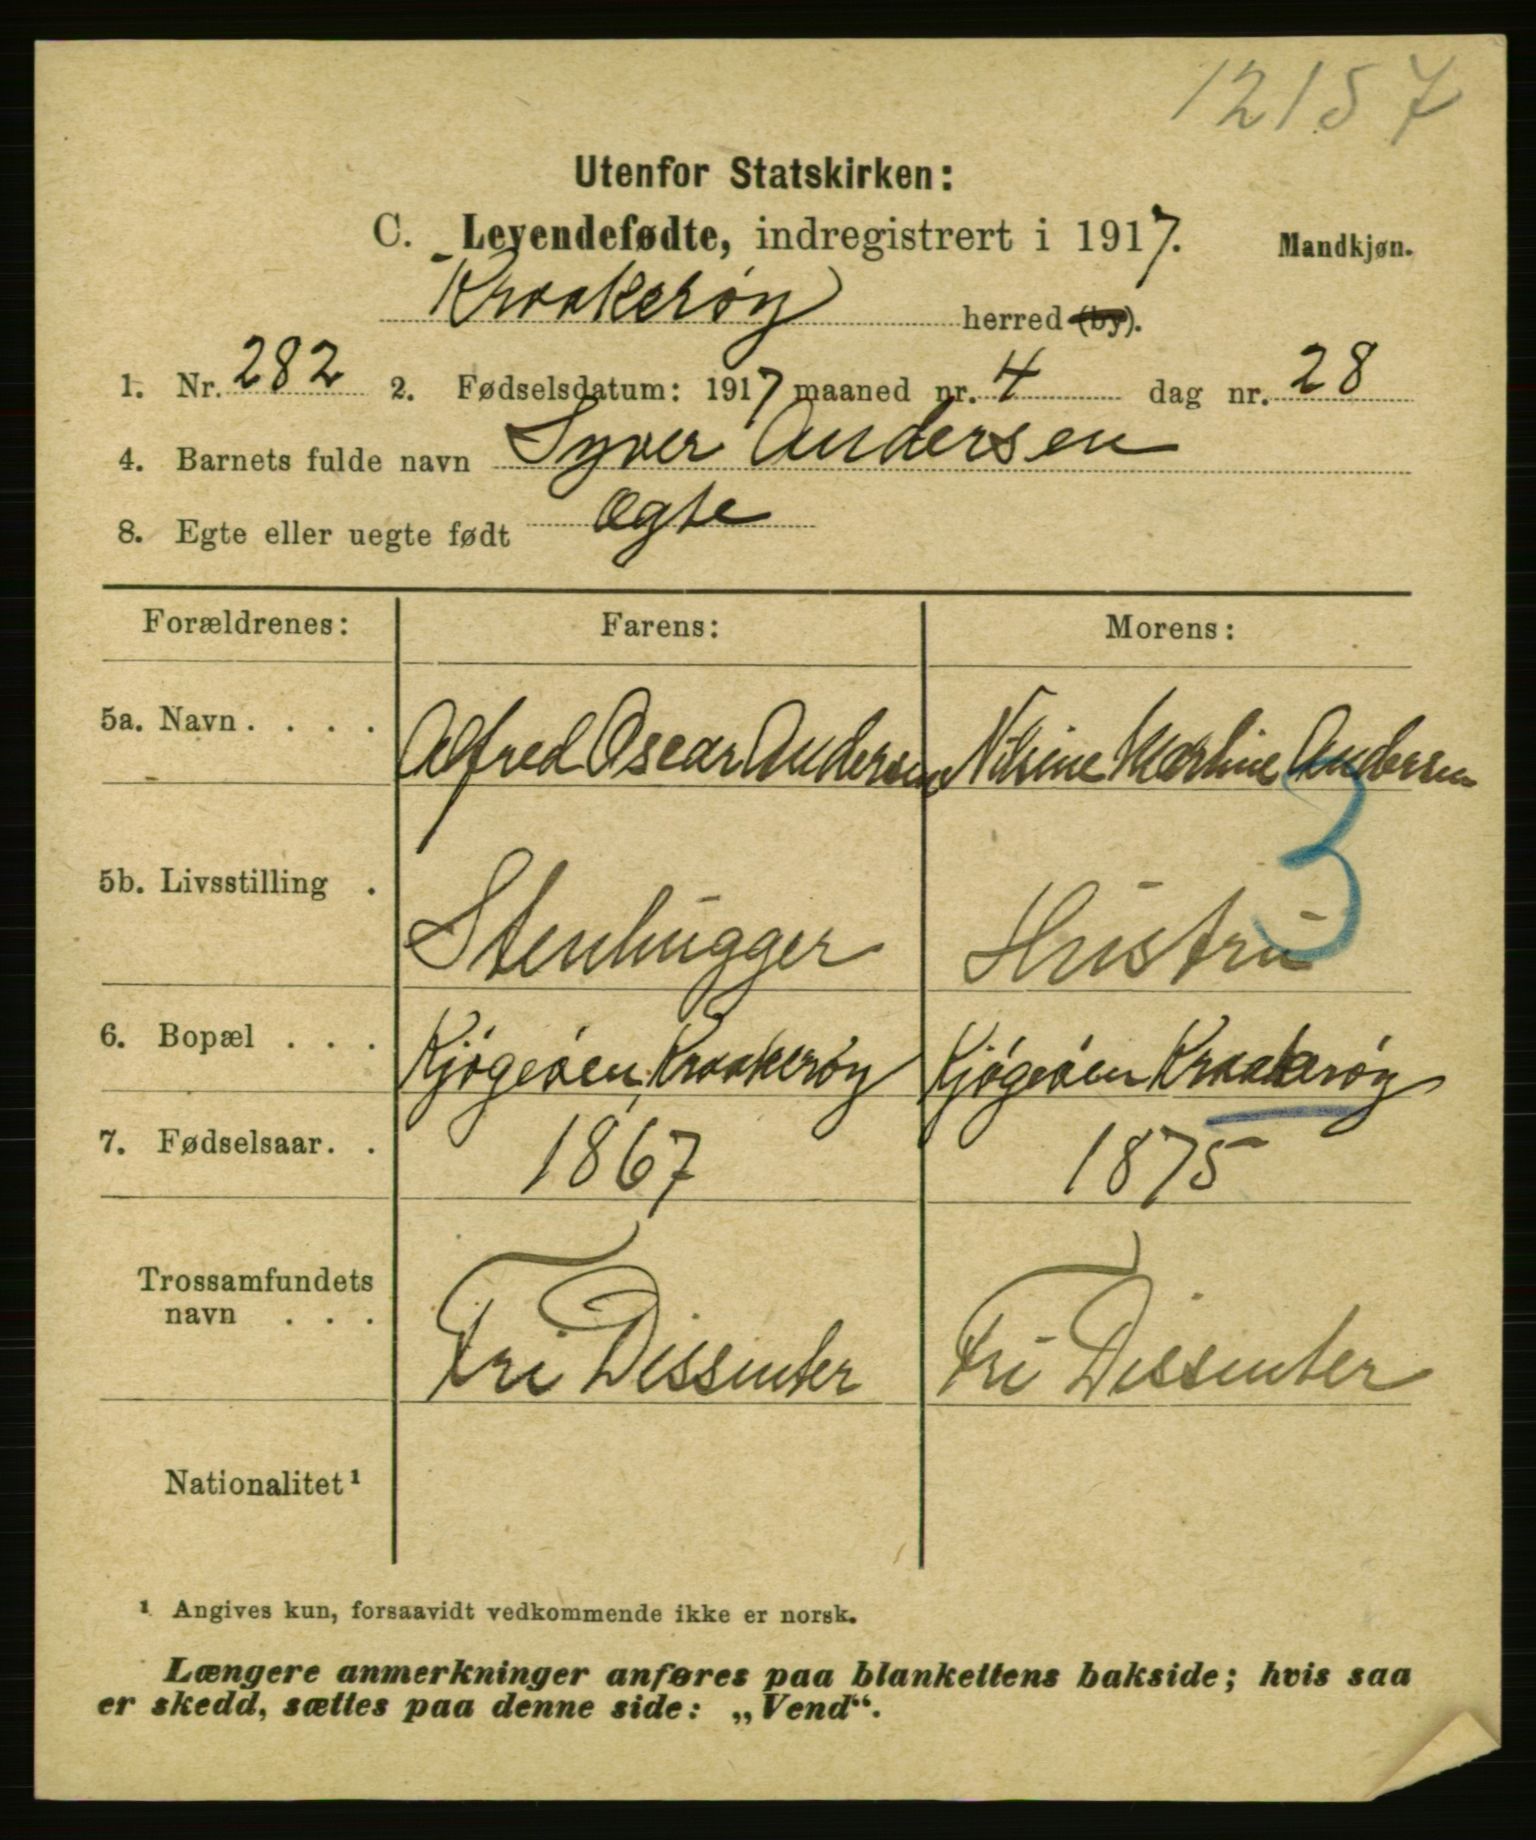 12157
Utenfor Statskirken:
C. Levendefødte, indregistrert i 1917. Mandkjøn.
Kraakerøy herred (by).
1. Nr. 282 2. Fødselsdatum: 1917 maaned nr. 4 dag nr. 28
4. Barnets fulde navn Syver Andersen
8. Egte eller uegte født Ægte
Forældrenes: Farens: Morens:
5a. Navn . . . . Alfred Oscar Andersen Nilsine Martine Andersen
3
5b. Livsstilling . Stenhugger Hustru
6. Bopæl . . . Kjøgeøen, Kraakerøy Kjøgeøen Kraakerøy
7. Fødselsaar. . 1867 1875
Trossamfundets
navn . . . Fri Dissenter Fri Dissenter
Nationalitet¹
¹ Angives kun, forsaavidt vedkommende ikke er norsk.
Længere anmerkninger anføres paa blankettens bakside; hvis saa
er skedd, sættes paa denne side: „Vend“.